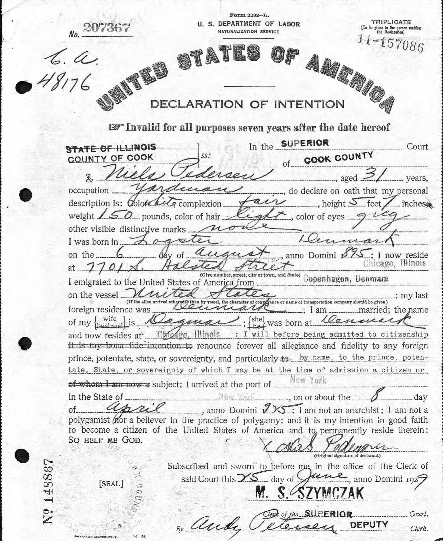 Form 2202-L.
No. 207367
U. S. DEPARTMENT OF LABOR
NATURALIZATION SERVICE
TRIPLICATE
11-157086
C. A.
48176
UNITED STATES OF AMERICA
DECLARATION OF INTENTION
Invalid for all purposes seven years after the date hereof
STATE OF ILLINOIS
COUNTY OF COOK
ss:
In the SUPERIOR Court
of COOK COUNTY
I, Niels Pedersen, aged 31 years,
occupation Yardman, do declare on oath that my personal
description is: Color White complexion fair, height 5 feet 7 inches
weight 150 pounds, color of hair light, color of eyes grey
other visible distinctive marks none
I was born in Logster Denmark
on the 6 day of August, anno Domini 1895; I now reside
at 7701 S. Halsted Street Chicago, Illinois
I emigrated to the United States of America from Copenhagen, Denmark
on the vessel United States; my last
foreign residence was Denmark; I am married; the name
of my wife is Dagmar; she was born at Denmark
and now resides at Chicago, Illinois; I will before being admitted to citizenship
it is my bona fide intention to renounce forever all allegiance and fidelity to any foreign
prince, potentate, state, or sovereignty, and particularly to by name, to the prince, poten-
tate, State, or sovereignty of which I may be at time of admission a citizen or
of whom I am now a subject; I arrived at the port of New York
in the State of New York, on or about the 8 day
of April, anno Domini 1925; I am not an anarchist; I am not a
polygamist nor a believer in the practice of polygamy; and it is my intention in good faith
to become a citizen of the United States of America and to permanently reside therein:
SO HELP ME GOD.
X Niels Pedersen
(Original signature of declarant)
Subscribed and sworn to before me in the office of the Clerk of
said Court this 25 day of June, anno Domini 1929
[SEAL]
M. S. SZYMCZAK
Clerk of the SUPERIOR Court.
By Andy Petersen DEPUTY Clerk.
No 148867